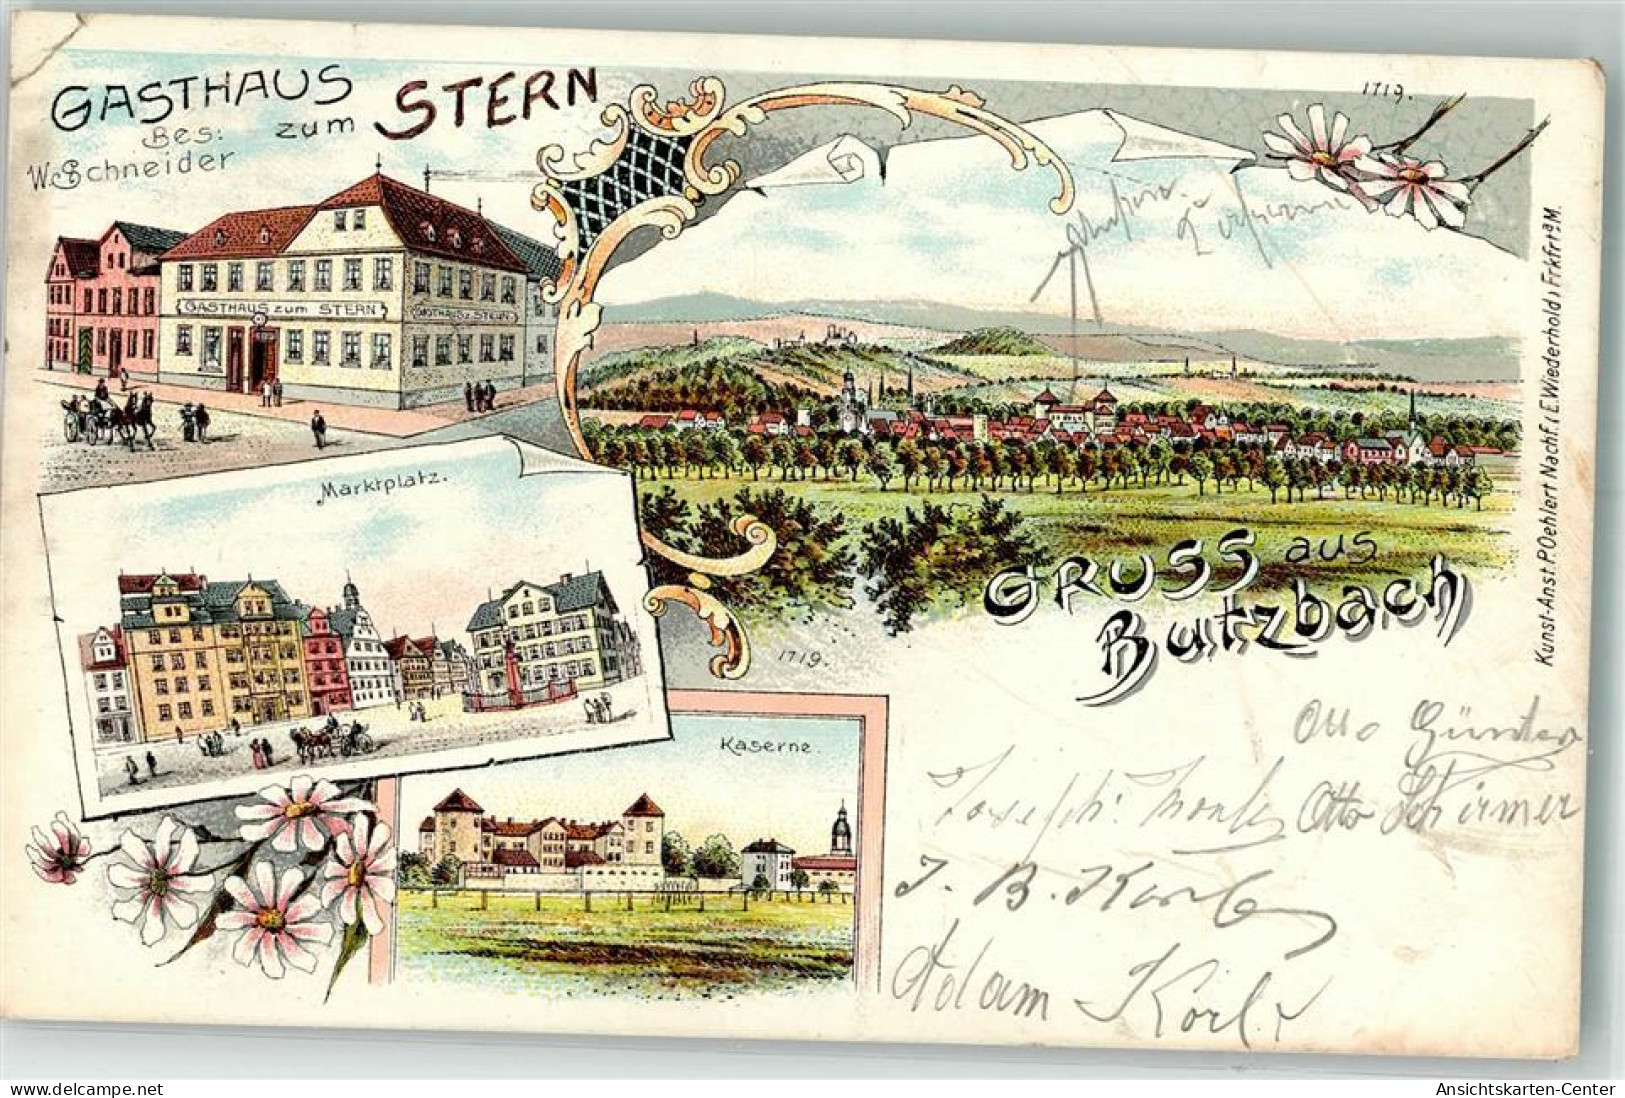 GASTHAUS
zum STERN
Bes:
W. Schneider
GASTHAUS zum STERN
GASTHAUS z. STERN
1719.
Marktplatz.
1719.
GRUSS aus
Butzbach
Kaserne.
Kunst-Anst. P. Oehlert Nachf. (E. Wiederhold) Frkfrt a/M.
Otto Günter
Joseph
Otto Schirmer
J. B. Korb
Adam
www.delcampe.net
Ansichtskarten-Center